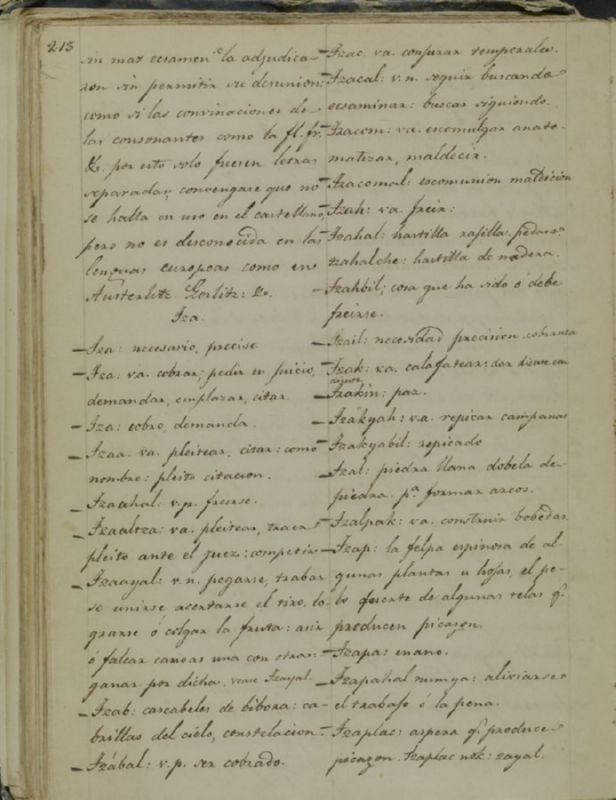 213
sin mas ecsamen la adjudica-
ron sin permitir su desunion:
como si las convinaciones de
las consonantes como la fl. fr.
&c. por esto solo fuesen letras
separadas, convengase que no
se halla en uso en el castellano,
pero no es desconocida en las
lenguas europeas como en
Austerlitz Gorlitz: &c.
Tza.
-Tza: necesario, precise
-Tza: va. cobrar; pedir en juicio,
demandar, emplazar, citar.
-Tza: cobro, demanda.
-Tzaa. va. pleitear, citar: como
nombre: pleito citacion.
-Tzaahal: v.p. freirse.
-Tzaaltza: va. pleitear, traer
pleito ante el juez: competir
-Tzaayal: v.n. pegarse, trabar
se unirse acertarse el tiro, lo-
grarse ó colgar la fruta: asir
ó falcar canoas una con otra:
ganar por dicha, vease Tzayal.
-Tzab: cascabeles de bibora: ca-
brillas del cielo, constelacion.
-Tzábal: v.p. ser cobrado.
-Tzac. va. conjurar temperales.
-Tzacal: v.n. seguir buscando
ecsaminar: buscar siguiendo.
-Tzacom: va. escomulgar anate-
matizar, maldecir.
-Tzacomal: escomunion maldicion
-Tzah: va. freir:
-Tzahal: hastilla rajilla. pedazo
tzahalche: hastilla de madera.
-Tzahbil; cosa que ha sido ó debe
freirse.
-Tzail: necesidad precision cobranza
-Tzak: va. calafatear:
-Tzakin: paz.
-Tzákyah: va. repicar campanas
-Tzakyabil: repicado
-Tzal: piedra llana dobela de
piedra pa. formar arcos.
-Tzalpak: va. construir bobedas
-Tzap: la felpa espinosa de al-
gunas plantas u hojas, el pe-
lo fuerte de algunas telas q.
producen picazon.
-Tzapa: enano.
-Tzapahal numya: aliviarse
el trabajo ó la pena.
-Tzaplac: aspera q. produce
picazon. Tzaplac nok: sayal.